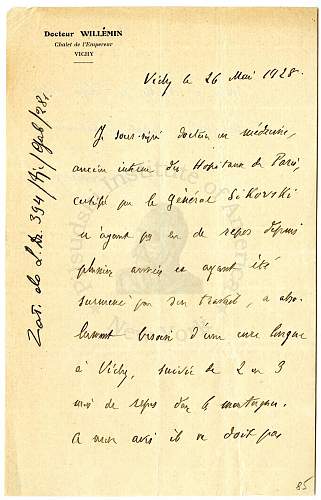 Docteur WILLÉMIN
Chalet de l'Empereur
VICHY
Vichy le 26 Mai 1928.
Zał. do L. Dz. 394/Gab/28r.
Je soussigné docteur en médecine,
ancien interne des Hopitaux de Paris,
certifie que le Général Sikorski
n'ayant pas eu de repos depuis
plusieurs années et ayant été
surmené par son travail, a abso-
lument besoin d'une cure longue
à Vichy, suivie de 2 ou 3
mois de repos dans la montagne.
A mon avis il ne doit pas
85
Pilsudski Institute of America